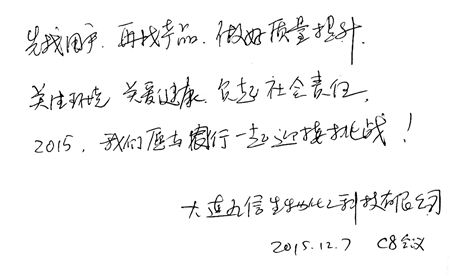 先找用户.再找产品.做好质量提升.
关注环境 关爱健康.负起社会责任,
2015,我们愿与窗行一起迎接挑战!
大连九信生物化工科技有限公司
2015.12.7 C8会议